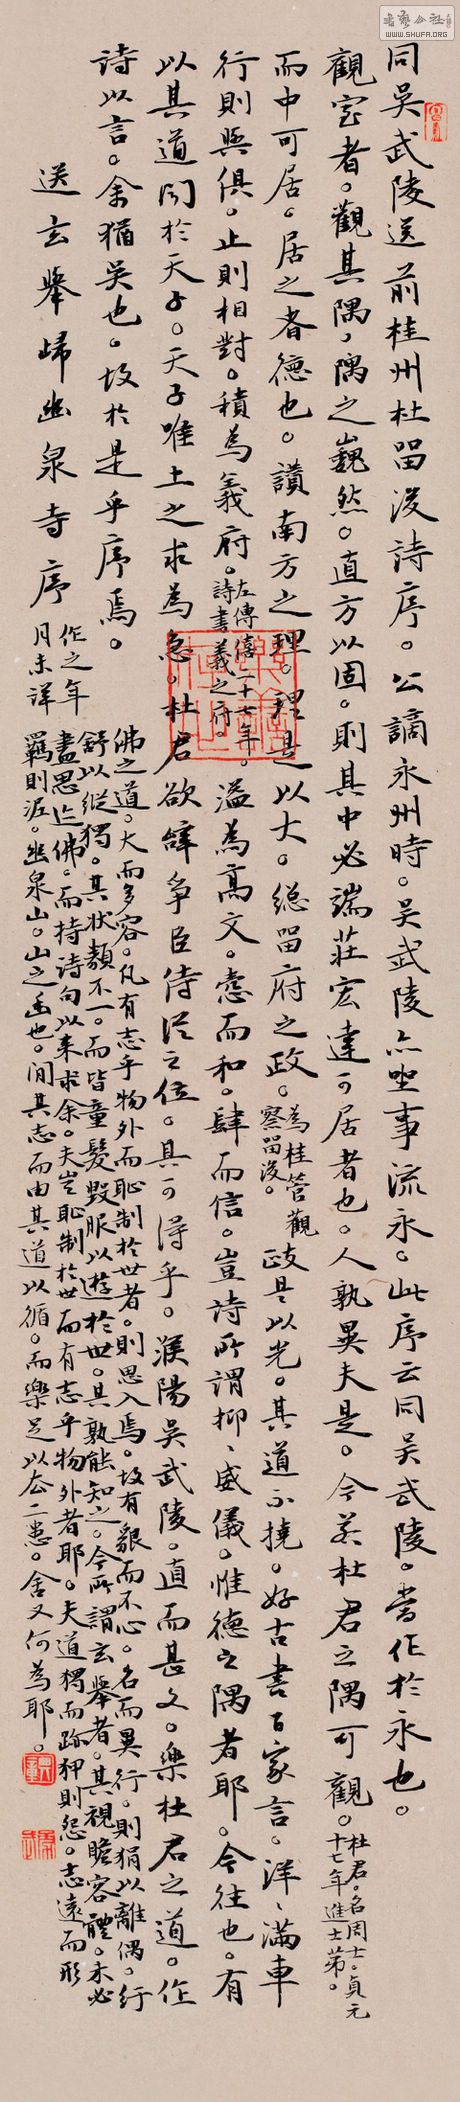 同吳武陵送前桂州杜留後詩序。公謫永州時。吳武陵亦坐事流永。此序云同吳武陵。當作於永也。
觀室者。觀其隅。隅之巍然。直方以固。則其中必端莊宏達可居者也。人孰異夫是。今若杜君之隅可觀。杜君。名周士。貞元
十七年進士第。
而中可居。居之者德也。讚南方之理。理是以大。總留府之政。為桂管觀
察留後。政是以光。其道不撓。好古書百家言。洋、滿車
行則與俱。止則相對。積為義府。左傳僖二十七年。
詩書義之府。溢為高文。愨而和。肆而信。豈詩所謂抑、威儀。惟德之隅者耶。今往也。有
以其道聞於天子。天子唯士之求為急。杜君欲辭爭臣侍從之位。其可得乎。濮陽吳武陵。直而甚文。樂杜君之道。作
詩以言。余猶吳也。故於是乎序焉。
送玄舉歸幽泉寺序
作之年
月未詳
佛之道。大而多容。凡有志乎物外而恥制於世者。則思入焉。故有貌而不心。名而異行。則狷以離偶。行
舒以縱獨。其狀類不一。而皆童髮毀服以遊於世。其孰能知之。今所謂玄舉者。其視瞻容體。未必
盡思跡佛。而持詩句以來求余。夫豈恥制於世而有志乎物外者耶。夫道獨而跡狎則怨。志遠而形
羈則泥。幽泉山。山之幽也。閒其志而由其道以循。而樂足以去二患。舍又何為耶。
書藝公社
WWW.SHUFA.ORG